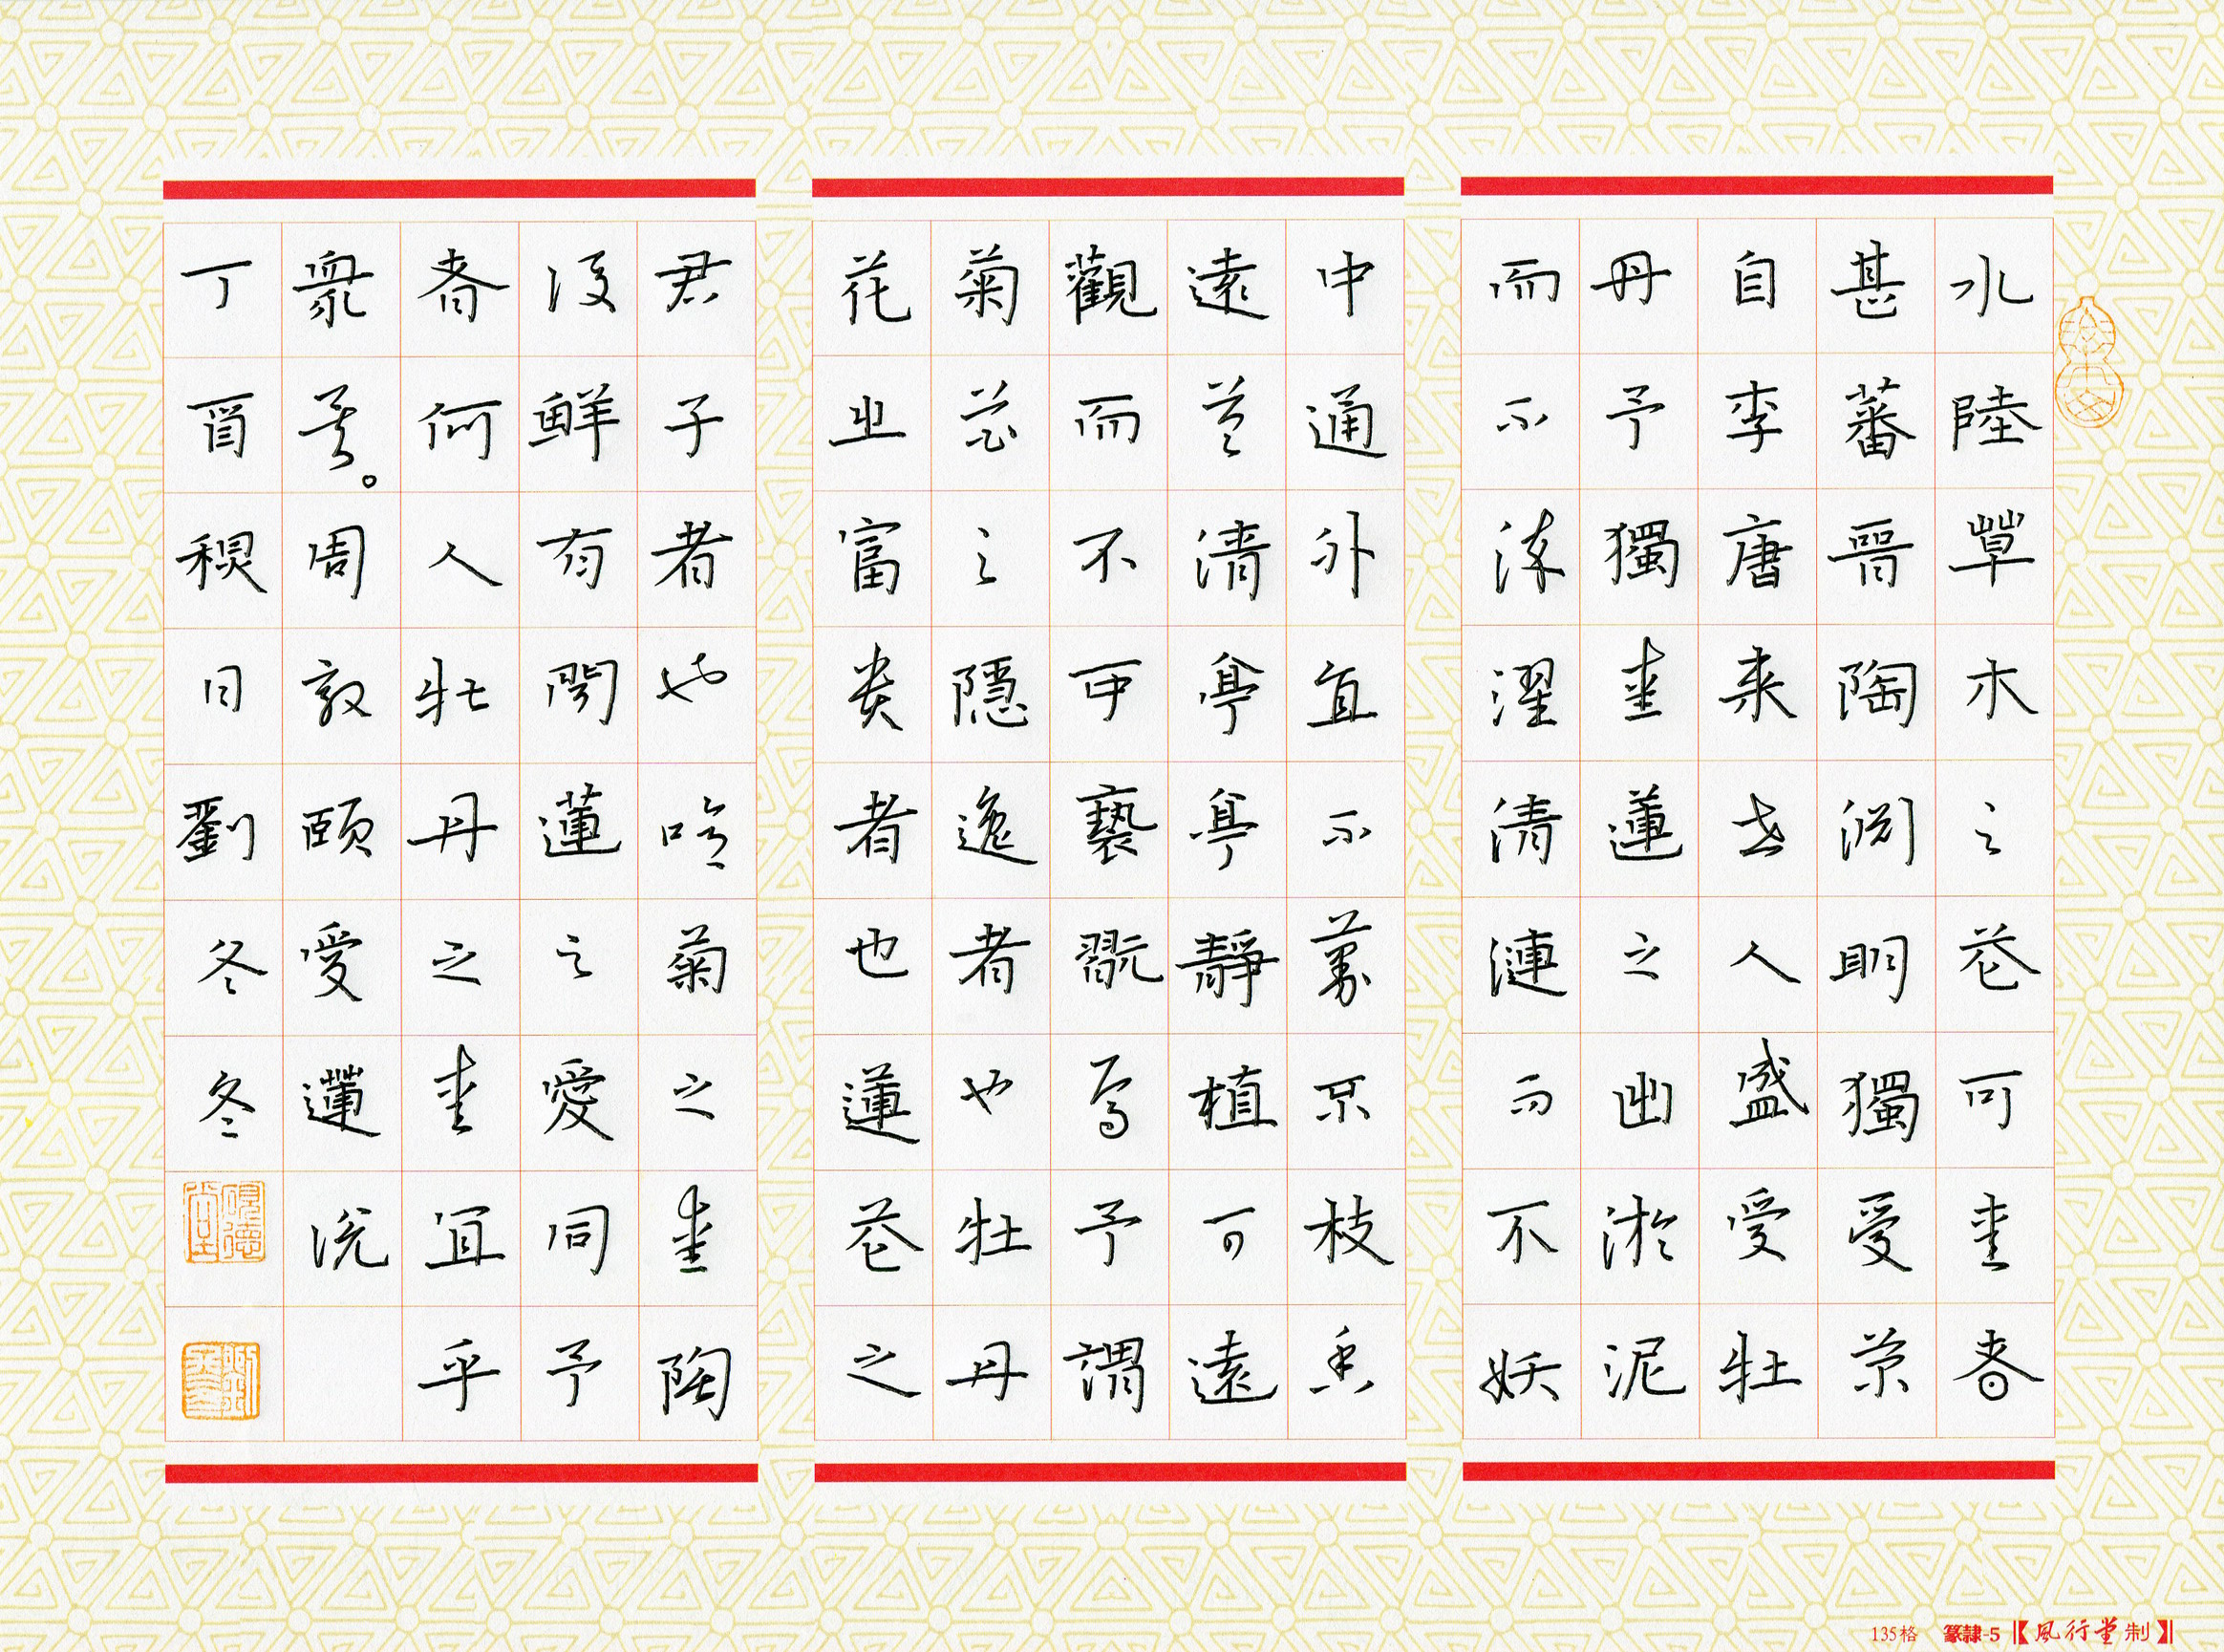 水陸草木之花可愛者
甚蕃晉陶淵明獨愛菊
自李唐来世人盛愛牡
丹予獨愛蓮之出淤泥
而不染濯清漣而不妖
中通外直不蔓不枝香
遠益清亭亭靜植可遠
觀而不可褻翫焉予謂
菊花之隱逸者也牡丹
花之富貴者也蓮花之
君子者也噫菊之愛陶
後鮮有聞蓮之愛同予
者何人牡丹之愛宜乎
衆矣。周敦頤愛蓮説
丁酉稷日劉冬冬
135格 篆隸-5【風行堂制】